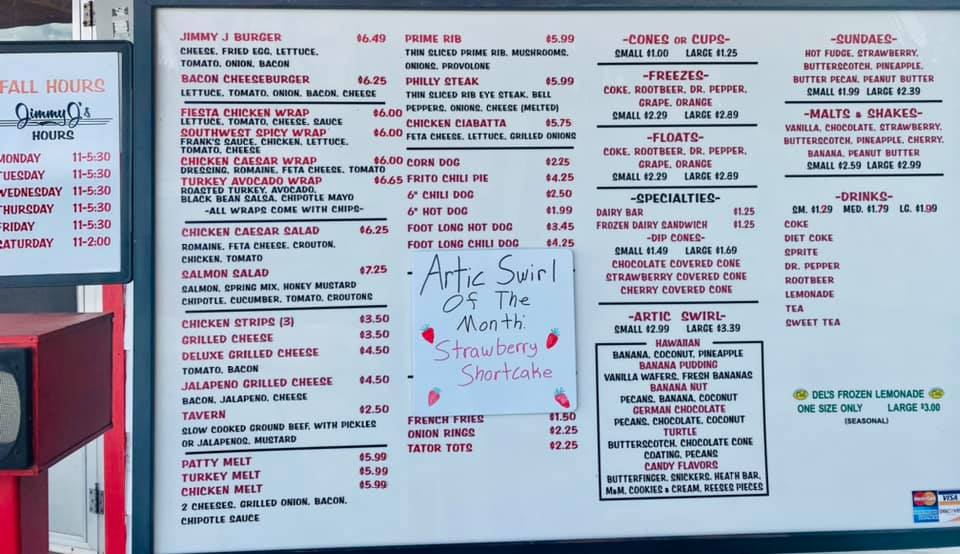 FALL HOURS
Jimmy J's
HOURS
MONDAY 11-5:30
TUESDAY 11-5:30
WEDNESDAY 11-5:30
THURSDAY 11-5:30
FRIDAY 11-5:30
SATURDAY 11-2:00
JIMMY J BURGER $6.49
CHEESE, FRIED EGG, LETTUCE,
TOMATO, ONION, BACON
BACON CHEESEBURGER $6.25
LETTUCE, TOMATO, ONION, BACON, CHEESE
FIESTA CHICKEN WRAP $6.00
LETTUCE, TOMATO, CHEESE, SAUCE
SOUTHWEST SPICY WRAP $6.00
FRANK'S SAUCE, CHICKEN, LETTUCE,
TOMATO, CHEESE
CHICKEN CAESAR WRAP $6.00
DRESSING, ROMAINE, FETA CHEESE, TOMATO
TURKEY AVOCADO WRAP $6.65
ROASTED TURKEY, AVOCADO,
BLACK BEAN SALSA, CHIPOTLE MAYO
-ALL WRAPS COME WITH CHIPS-
CHICKEN CAESAR SALAD $6.25
ROMAINE, FETA CHEESE, CROUTON,
CHICKEN, TOMATO
SALMON SALAD $7.25
SALMON, SPRING MIX, HONEY MUSTARD
CHIPOTLE, CUCUMBER, TOMATO, CROUTONS
CHICKEN STRIPS (3) $3.50
GRILLED CHEESE $3.50
DELUXE GRILLED CHEESE $4.50
TOMATO, BACON
JALAPENO GRILLED CHEESE $4.50
BACON, JALAPENO, CHEESE
TAVERN $2.50
SLOW COOKED GROUND BEEF, WITH PICKLES
OR JALAPENOS, MUSTARD
PATTY MELT $5.99
TURKEY MELT $5.99
CHICKEN MELT $5.99
2 CHEESES, GRILLED ONION, BACON,
CHIPOTLE SAUCE
PRIME RIB $5.99
THIN SLICED PRIME RIB, MUSHROOMS,
ONIONS, PROVOLONE
PHILLY STEAK $5.99
THIN SLICED RIB EYE STEAK, BELL
PEPPERS, ONIONS, CHEESE (MELTED)
CHICKEN CIABATTA $5.75
FETA CHEESE, LETTUCE, GRILLED ONIONS
CORN DOG $2.25
FRITO CHILI PIE $4.25
6" CHILI DOG $2.50
6" HOT DOG $1.99
FOOT LONG HOT DOG $3.45
FOOT LONG CHILI DOG $4.25
Artic Swirl
Of The
Month:
Strawberry
Shortcake
FRENCH FRIES $1.50
ONION RINGS $2.25
TATOR TOTS $2.25
-CONES OR CUPS-
SMALL $1.00 LARGE $1.25
-FREEZES-
COKE, ROOTBEER, DR. PEPPER,
GRAPE, ORANGE
SMALL $2.29 LARGE $2.89
-FLOATS-
COKE, ROOTBEER, DR. PEPPER,
GRAPE, ORANGE
SMALL $2.29 LARGE $2.89
-SPECIALTIES-
DAIRY BAR $1.25
FROZEN DAIRY SANDWICH $1.25
-DIP CONES-
SMALL $1.49 LARGE $1.69
CHOCOLATE COVERED CONE
STRAWBERRY COVERED CONE
CHERRY COVERED CONE
-ARTIC SWIRL-
SMALL $2.99 LARGE $3.39
HAWAIIAN
BANANA, COCONUT, PINEAPPLE
BANANA PUDDING
VANILLA WAFERS, FRESH BANANAS
BANANA NUT
PECANS, BANANA, COCONUT
GERMAN CHOCOLATE
PECANS, CHOCOLATE, COCONUT
TURTLE
BUTTERSCOTCH, CHOCOLATE CONE
COATING, PECANS
CANDY FLAVORS
BUTTERFINGER, SNICKERS, HEATH BAR,
M&M, COOKIES & CREAM, REESES PIECES
-SUNDAES-
HOT FUDGE, STRAWBERRY,
BUTTERSCOTCH, PINEAPPLE,
BUTTER PECAN, PEANUT BUTTER
SMALL $1.99 LARGE $2.39
-MALTS & SHAKES-
VANILLA, CHOCOLATE, STRAWBERRY,
BUTTERSCOTCH, PINEAPPLE, CHERRY,
BANANA, PEANUT BUTTER
SMALL $2.59 LARGE $2.99
-DRINKS-
SM. $1.29 MED. $1.79 LG. $1.99
COKE
DIET COKE
SPRITE
DR. PEPPER
ROOTBEER
LEMONADE
TEA
SWEET TEA
DEL'S FROZEN LEMONADE
ONE SIZE ONLY LARGE $3.00
(SEASONAL)
MasterCard VISA